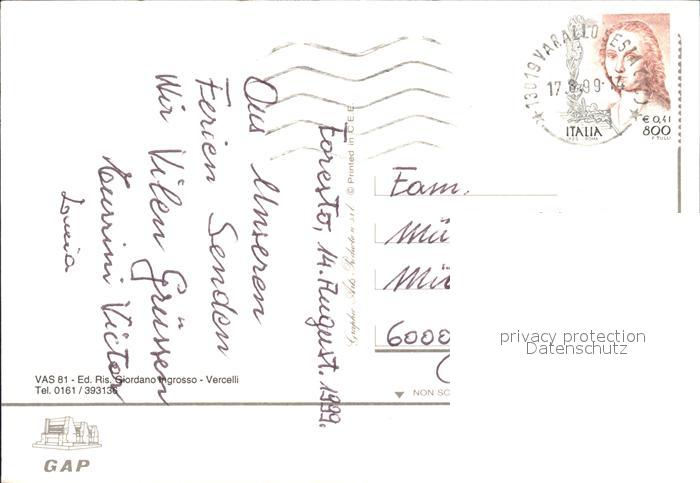 Foresto, 14. August. 1999.
Aus Unseren
Ferien Senden
Wir Vilen Grüssen
Victor
Lucia
Fam.
Mü
Mü
6000
13019 VARALLO SESIA
17.8.99-14
ITALIA
€ 0,41
800
© Printed in C.E.E.
privacy protection
Datenschutz
VAS 81 - Ed. Ris. Giordano Ingrosso - Vercelli
Tel. 0161 / 393136
NON SC
GAP